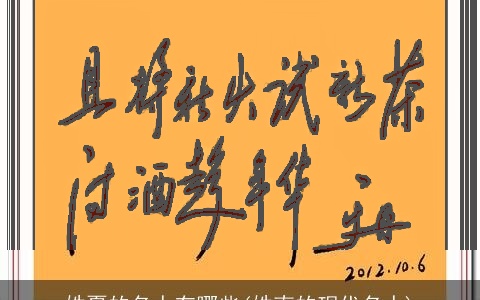 且将新火试新茶
诗酒趁年华
2012.10.6
姓夏的名人有哪些(姓夏的现代名人)